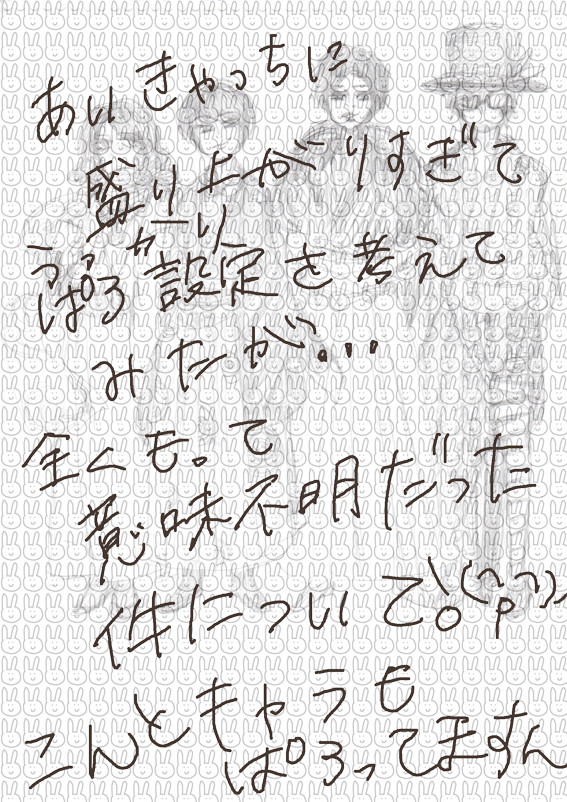 あいきゃっちに
盛り上がりすぎて
ガーリィ
ぱろ設定を考えて
みたが...
全くもって
意味不明だった
件について!。
こんどキャラも
ぱろってますん